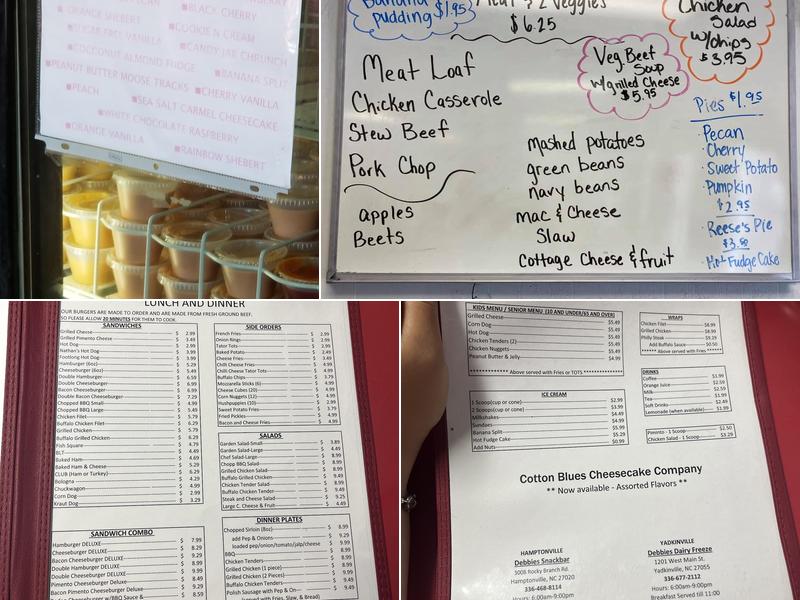 BLACK CHERRY
ORANGE SHERBERT
COOKIE N CREAM
SUGAR FREE VANILLA
CANDY JAR CHRUNCH
COCONUT ALMOND FUDGE
BANANA SPLIT
PEANUT BUTTER MOOSE TRACKS
CHERRY VANILLA
PEACH
SEA SALT CARMEL CHEESECAKE
WHITE CHOCOLATE RASPBERRY
ORANGE VANILLA
RAINBOW SHEBERT
Banana pudding $1.95
Meat & 2 Veggies
$6.25
Chicken
Salad
w/chips
$3.95
Veg. Beef
Soup
w/grilled Cheese
$5.95
Meat Loaf
Chicken Casserole
Stew Beef
Pork Chop
apples
Beets
mashed potatoes
green beans
navy beans
mac & Cheese
Slaw
Cottage Cheese & fruit
Pies $1.95
Pecan
Cherry
Sweet Potato
Pumpkin
$2.95
Reese's Pie
Hot Fudge Cake
LUNCH AND DINNER
OUR BURGERS ARE MADE TO ORDER AND ARE MADE FROM FRESH GROUND BEEF.
SO PLEASE ALLOW 20 MINUTES FOR THEM TO COOK.
SANDWICHES
Grilled Cheese $ 2.99
Grilled Pimento Cheese $ 3.49
Hot Dog $ 2.99
Nathan's Hot Dog $ 3.99
Footlong Hot Dog $ 3.99
Hamburger (6oz) $ 5.29
Cheeseburger (6oz) $ 5.49
Double Hamburger $ 6.59
Double Cheeseburger $ 6.99
Bacon Cheeseburger $ 6.99
Double Bacon Cheeseburger $ 7.29
Chopped BBQ Small $ 4.99
Chopped BBQ Large $ 5.49
Chicken Filet $ 5.79
Buffalo Chicken Filet $ 6.29
Grilled Chicken $ 5.79
Buffalo Grilled Chicken $ 6.29
Fish Square $ 4.79
BLT $ 4.49
Baked Ham $ 4.69
Baked Ham & Cheese $ 5.29
CLUB (Ham or Turkey) $ 6.29
Bologna $ 4.29
Chuckwagon $ 4.99
Corn Dog $ 2.99
Kraut Dog $ 3.29
SIDE ORDERS
French Fries $ 2.99
Onion Rings $ 2.99
Tater Tots $ 2.99
Baked Potato $ 2.49
Cheese Fries $ 3.49
Chili Cheese Fries $ 4.99
Chili Cheese Tator Tots $ 4.99
Buffalo Chips $ 3.79
Mozzarella Sticks (6) $ 4.99
Cheese Cubes (20) $ 4.99
Corn Nuggets (12) $ 4.99
Hushpuppies (10) $ 2.99
Sweet Potato Fries $ 3.79
Fried Pickles $ 4.99
Bacon and Cheese Fries $ 4.99
SALADS
Garden Salad-Small $ 3.89
Garden Salad-Large $ 4.49
Chef Salad-Large $ 8.99
Chopp BBQ Salad $ 8.99
Grilled Chicken Salad $ 8.99
Buffalo Grilled Chicken $ 9.49
Chicken Tender Salad $ 8.99
Buffalo Chicken Tender $ 9.49
Steak and Cheese Salad $ 9.25
Large C. Cheese & Fruit $ 4.49
SANDWICH COMBO
Hamburger DELUXE $ 7.99
Cheeseburger DELUXE $ 8.29
Bacon Cheeseburger DELUXE $ 9.29
Double Hamburger DELUXE $ 8.99
Double Cheeseburger DELUXE $ 9.49
Bacon Cheeseburger DELUXE $ 9.49
Bacon Pimento Cheeseburger Deluxe $ 9.29
DINNER PLATES
Chopped Sirloin (8oz) $ 8.99
add Pep & Onions $ 9.29
loaded pep/onion/tomato/jalp/cheese $ 9.99
BBQ $ 8.99
Chicken Tenders $ 8.99
Grilled Chicken (1 piece) $ 8.99
Grilled Chicken (2 Pieces) $ 9.99
Buffalo Chicken Tenders $ 9.49
Polish Sausage with Pep & On $ 9.49
(served with Fries, Slaw, & Bread)
KIDS MENU / SENIOR MENU (10 AND UNDER/65 AND OVER)
Grilled Cheese $5.49
Corn Dog $5.49
Hot Dog $5.49
Chicken Tenders (2) $5.49
Chicken Nuggets $5.49
Peanut Butter & Jelly $4.99
************ Above served with Fries or TOTS ************
WRAPS
Chicken Filet $8.99
Grilled Chicken $8.99
Philly Steak $9.29
Add Buffalo Sauce $0.50
****** Above served with Fries ******
ICE CREAM
1 Scoop(cup or cone) $2.99
2 Scoops(cup or cone) $3.99
Milkshakes $4.49
Sundaes $4.99
Banana Split $5.99
Hot Fudge Cake $5.29
Add Nuts $0.99
DRINKS
Coffee $1.99
Orange Juice $2.59
Milk $2.59
Tea $1.99
Soft Drinks $2.49
Lemonade (when available) $1.99
Piminto - 1 Scoop $2.50
Chicken Salad - 1 Scoop $3.29
Cotton Blues Cheesecake Company
** Now available - Assorted Flavors **
HAMPTONVILLE
Debbies Snackbar
3008 Rocky Branch Rd.
Hamptonville, NC 27020
336-468-8114
Hours: 6:00am-9:00pm
YADKINVILLE
Debbies Dairy Freeze
1201 West Main St.
Yadkinville, NC 27055
336-677-2112
Hours: 6:00am-9:00pm
Breakfast Served till 11:00